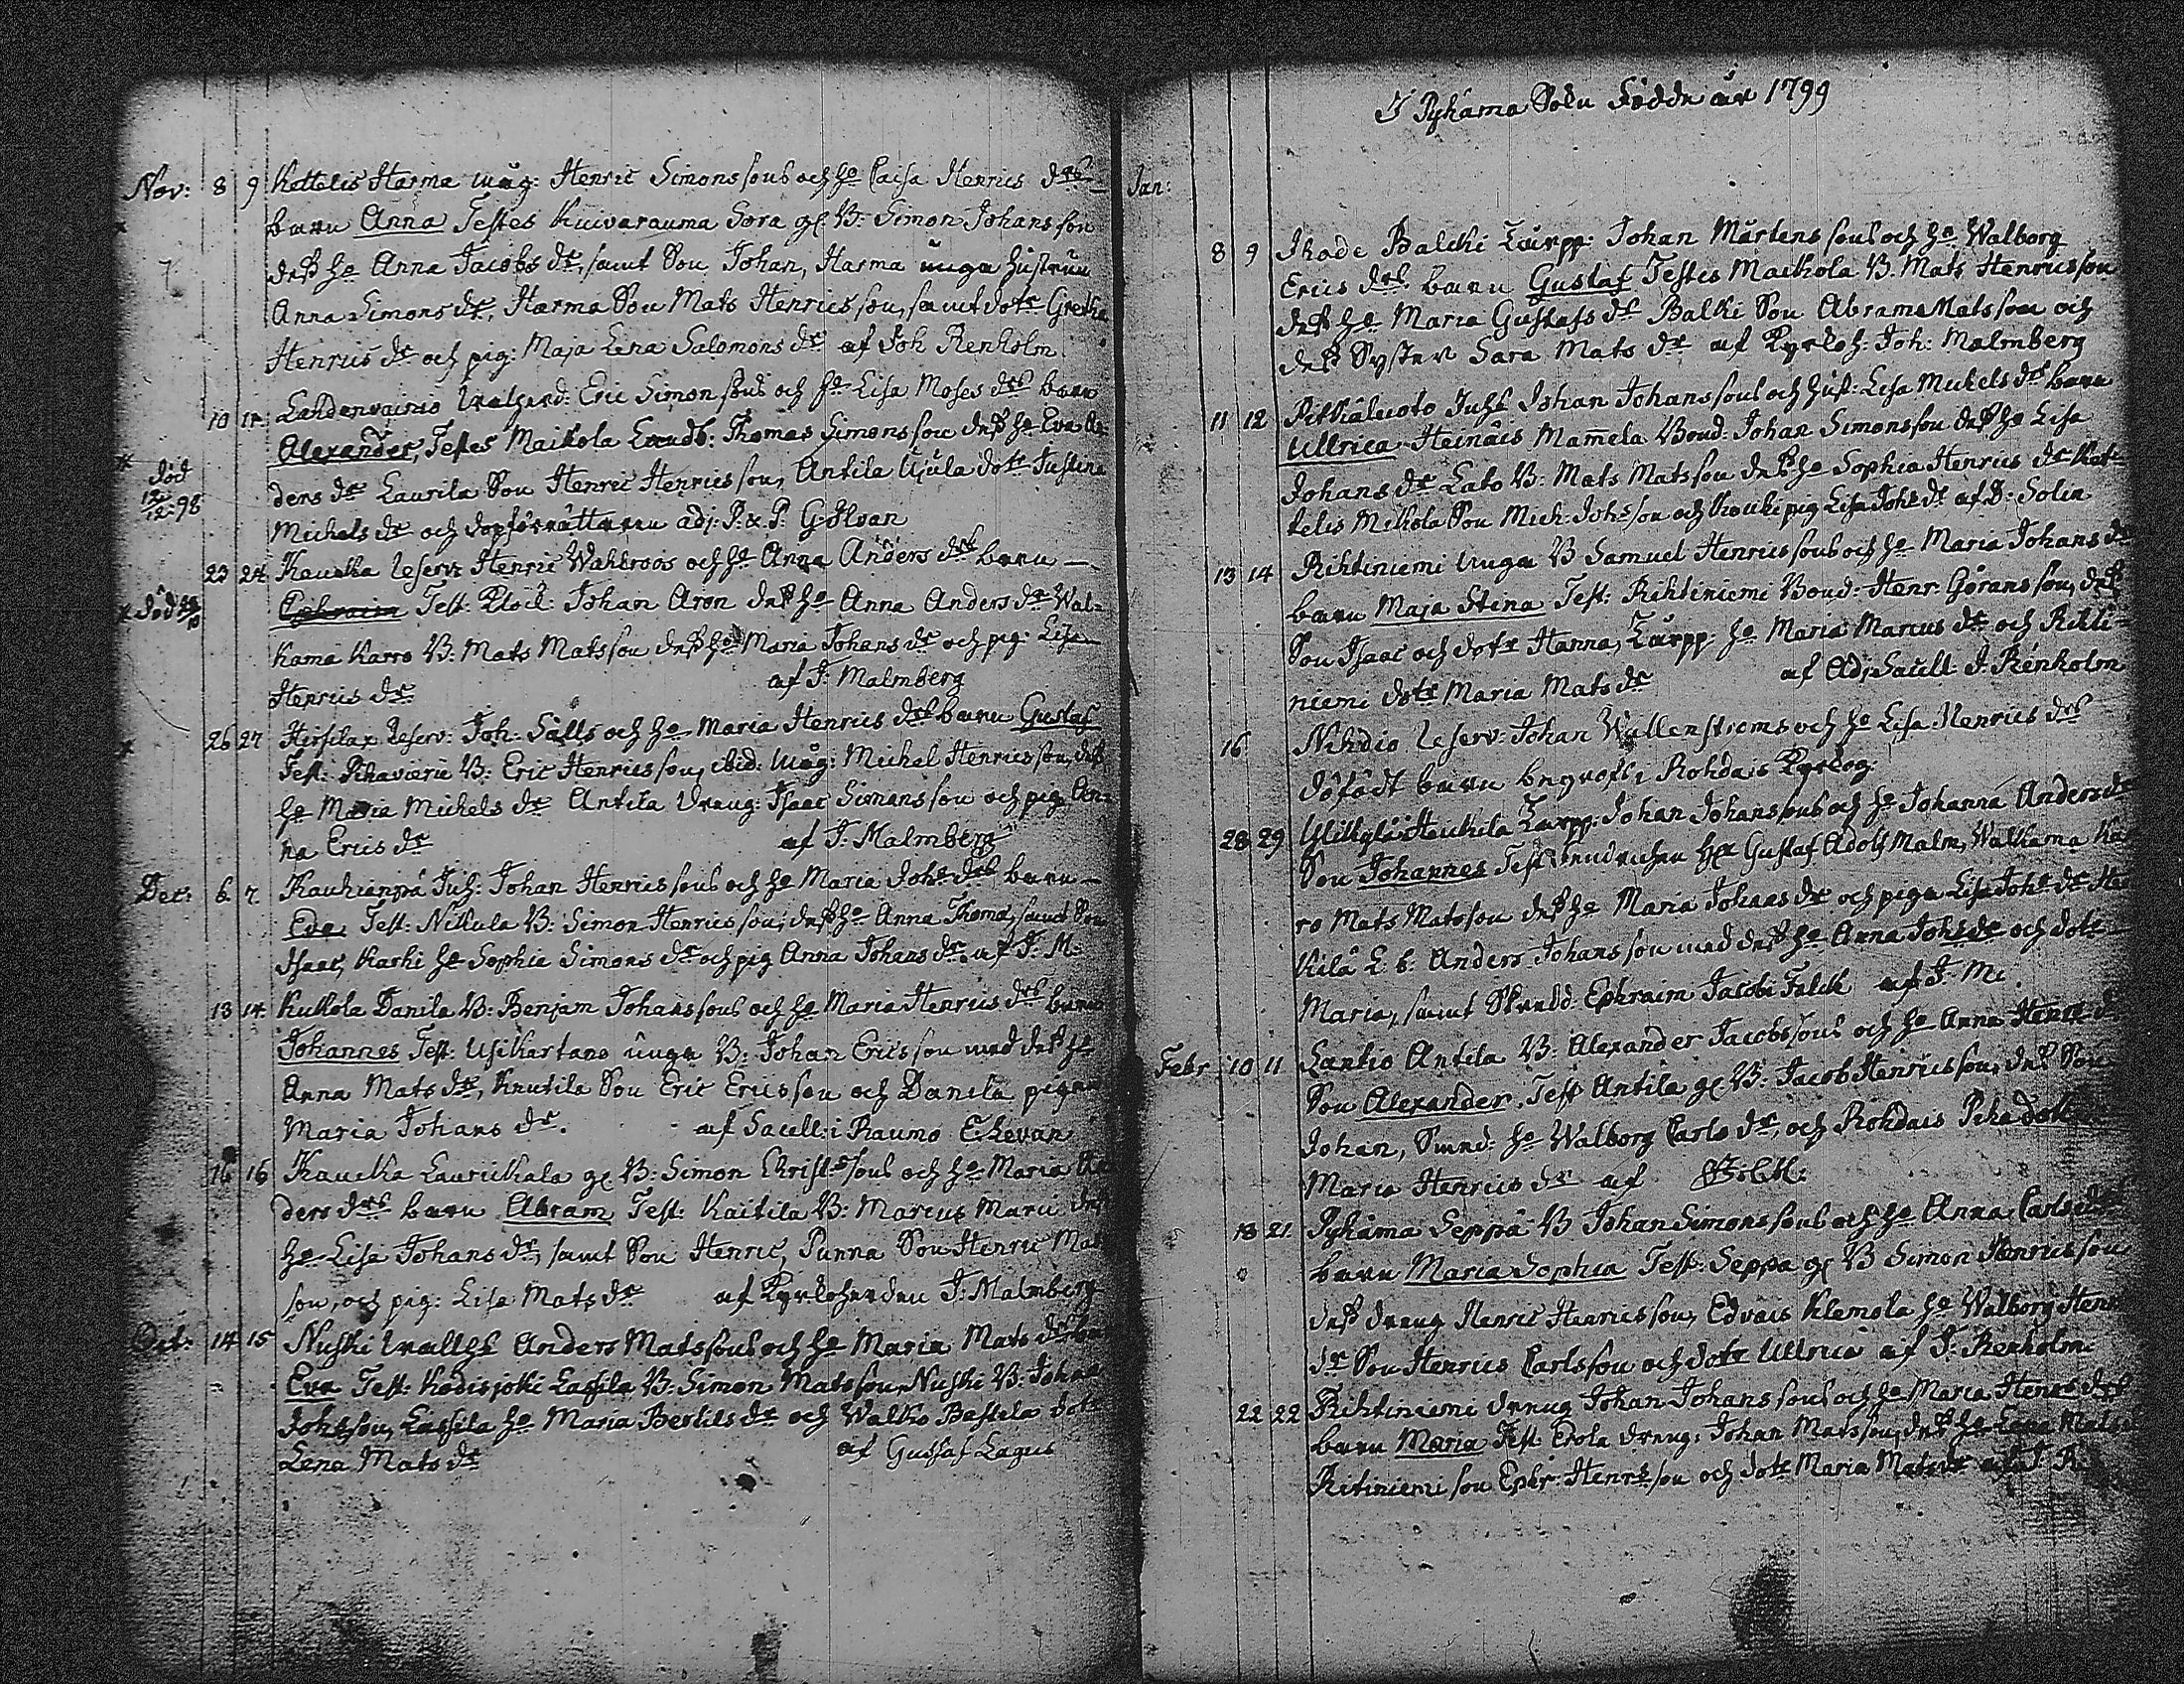 Nov: 8 9 Kettelis Harma måg: Henric Simonssons och ho Caisa Henrics drs
barn Anna Testes Kuivarauma Sora gl B: Simon Johansson
dess ho Anna Jacobs dr, samt Son Johan, Harma unga hustrun
Anna Simons dr, Harma Son Mats Henricsson, samt dotr Greta
Henrics dr och pig: Maja Lena Salomons dr af Joh Renholm
10 11 Lahdenvainio Eric Simonssons och ho Lisa Moses drs barn
Alexander, Testes Maikola Landb: Thomas Simonsson dess ho Eva An-
död 12/12 98 ders dr Laurila Son Henric Henricsson, Antila Uula dotr Justina
Michels dr och dopförrättaren adj: P. & P: G:
23 24 Kaukka Reserv Henric Wahlroos och ho Anna Anders drs barn
död Ephraim Test: Klock: Johan Aron dess ho Anna Anders dr Wal-
kama Karro B: Mats Matsson dess ho Maria Johans dr och pig: Lisa
Henrics dr af J: Malmberg
26 27 Hirsilax Reserv: Joh: Sälls och ho Maria Henrics drs barn Gustaf
Test: Pihavieru B: Eric Henricsson, ibid: måg: Michel Henricsson, dess
ho Maria Michels dr Antila dreng: Isaac Simonsson och pig An-
na Erics dr af J: Malmberg
Dec: 6 7 Kauhianpä Inh: Johan Henricssons och ho Maria Johs drs barn
Eva Test: Nikula B: Simon Henricsson, dess ho Anna Thomæ, samt Son
Isaac, Karhi ho Sophia Simons dr och pig Anna Johans dr af J: M:
13 14 Kukola Danila B: Benjam Johanssons och ho Maria Henrics drs barn
Johannes Test: Usikartano unga B: Johan Ericsson med dess ho
Anna Mats dr, Knutila Son Eric Ericsson och Danila pigan
Maria Johans dr. af Sacell: i Raumo E: Levan
16 16 Kaukka Laurikkala gl B: Simon Christssons och ho Maria An
ders drs barn Abram Test: Kaitila B: Marcus dess
ho Lisa Johans dr, samt Son Henric, Punna Son Henric Mats
son, och pig: Lisa Mats dr af Kyrkoherden J: Malmberg
Oct: 14 15 Nuhki Anders Matssons och ho Maria Mats drs barn
Eva Test: Kodisjoki Lassila B: Simon Matsson, Nuhki B: Johan
Johsson, Lassila ho Maria Bertils dr och Walko Bastila dotr
Lena Mats dr af Gustaf Lagus
I Pyhäma Sokn Födde år 1799
Jan:
8 9 Ihode Balcki Torpp: Johan Mårtenssons och ho Walborg
Erics drs barn Gustaf Testes Maikola B: Mats Henricsson
dess ho Maria Gustafs dr Balki Son Abram Matsson och
dess Syster Sara Mats dr af Kyrkoh: Joh: Malmberg
11 12 Pitkäluoto Inhs Johan Johanssons och hust: Lisa Mickels drs barn
Ullrica Heinäis Mammela Bond: Johan Simonsson dess ho Lisa
Johans dr Lato B: Mats Matsson dess ho Sophia Henrics dr Ket-
telis Mikola Son Mich: Johsson och Kouki pig Lisa Johs dr af D: Solin
13 14 Rihtiniemi unga B Samuel Henricssons och ho Maria Johans dr
barn Maja Stina Test: Rihtiniemi Bond: Henr: Göransson, dess
Son Isaac och dotr Hanna, Torpp: ho Maria Marcus dr och Rihti-
niemi dotr Maria Mats dr af Adj: Sacell: J: Renholm
16 Nihdio Reserv: Johan Wallenstroms och ho Lisa Henrics drs
döfödt barn begrofs i Rohdais Kyrkog:
28 29 Ylikylä Heickila Torpp: Johan Johanssons och ho Johanna Anders drs
Son Johannes Test: Fendrichen Her Gustaf Adolf Malm, Walkama Kar
ro Mats Matsson dess ho Maria Johans dr och pigan Lisa Johs dr Hei
kilä L: b: Anders Johansson med dess ho Anna Johs dr och dotr
Maria, samt Skredd: Ephraim Jacobi Falck af J: M:
Febr 10 11 Lantio Antila B: Alexander Jacobssons och ho Anna Henrs dr
Son Alexander Test Antila gl B: Jacob Henricsson, dess Son
Johan, Smed: ho Walborg Carls dr, och Rohdais Piha dotr
Maria Henrics dr af
18 21 Pyhäma Seppä B Johan Simonssons och ho Anna Carls drs
barn Maria Sophia Test: Seppa gl B Simon Henricsson
dess dreng Henric Henricsson, Edvais Klemola ho Walborg Henr
dr Son Henrics Carlsson och dotr Ullrica af J: Renholm
22 22 Rihtiniemi dreng Johan Johanssons och ho Maria Henrs drs
barn Maria Test: Erola dreng: Johan Matsson, dess ho Lena Mats
Ritiniemi son Ephr: Henrsson och dotr Maria Mats dr af J: R: